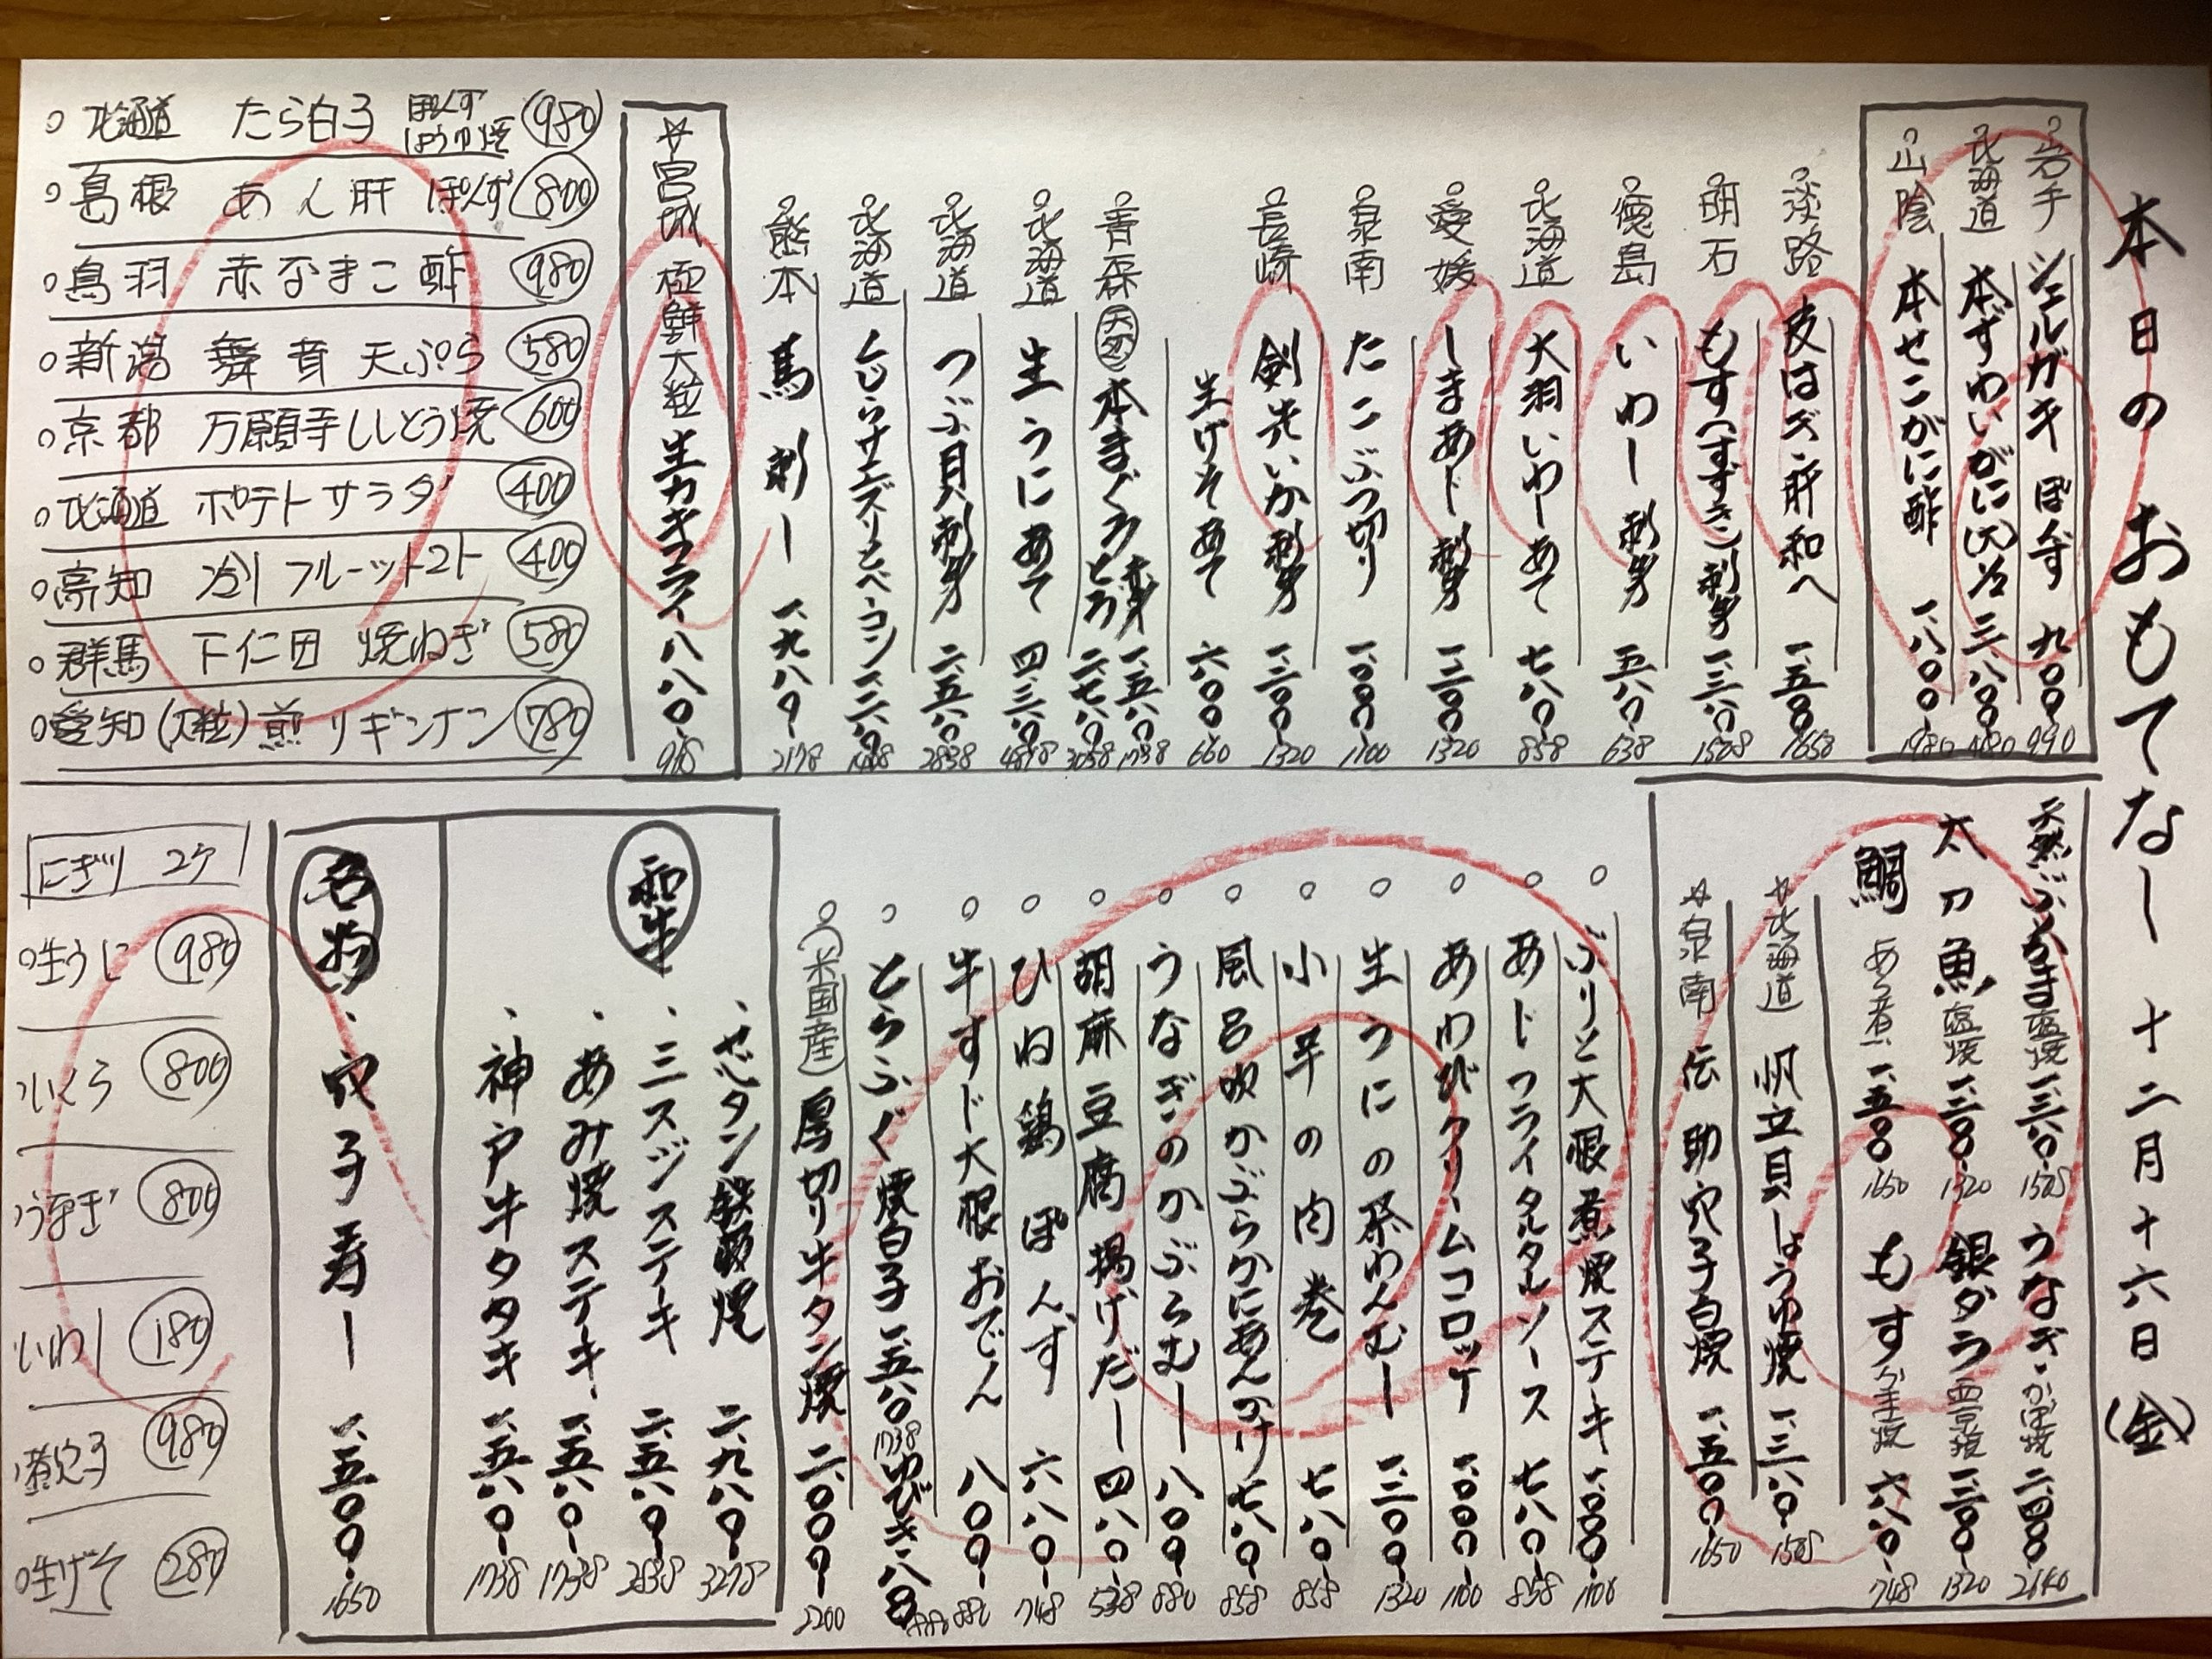 本日のおもてなし 十二月十六日(金)
岩手 シェルガキ ぽんず 九〇〇 990
北海道 本ずわいがに(穴)
山陰 本せこがに酢 一、八〇〇 1980
淡路 皮はぎ 肝和へ 一、五〇〇 1650
明石 もす(すずき)刺身
徳島 いわし 刺身 五八〇 638
北海道 大羽いわし あて 七八〇 858
愛媛 しまあじ 刺身 一、二〇〇 1320
泉南 たこぶつ切り 一、〇〇〇 1100
長崎 剣先いか刺身 一、二〇〇 1320
生げそ あて 六〇〇 660
青森 天然 本まぐろ
赤身 一、五八〇 1738
とろ
北海道 生うにあて
北海道 つぶ貝刺身 二、五八〇 2838
北海道
熊本 馬刺し 一、九八〇 2178
☆宮城 極鮮大粒 生カキフライ 八八〇 968
北海道 たら白子 ぽんず しょうゆ焼 980
島根 あん肝 ぽんず 800
鳥羽 赤なまこ酢 980
新潟 舞茸 天ぷら 580
京都 万願寺ししとう焼 600
北海道 ポテトサラダ 400
高知 冷 フルーツトマト 400
群馬 下仁田 焼ねぎ 580
愛知(大粒)煎りギンナン 780
天然ぶりかま塩焼 1508
うなぎ かば焼 二、四〇〇 2640
太刀魚 塩焼 一、二〇〇 1320
銀ダラ 西京焼 一、二〇〇 1320
鯛 あら煮 一、五〇〇 1650
もす かま焼 六八〇 748
☆北海道 帆立貝しょうゆ焼
☆泉南 伝助穴子白焼 一、五〇〇 1650
ぶりと大根煮 焼ステーキ 一、〇〇〇 1100
あじフライタルタルソース 七八〇 858
あわびクリームコロッケ 一、〇〇〇 1100
生うにの茶わんむし 一、二〇〇 1320
小芋の肉巻 七八〇 858
風呂吹かぶらかにあんかけ 七八〇 858
うなぎのかぶらむし 八〇〇 880
胡麻豆腐 揚げだし 四八〇 528
ひね鶏 ぽんず 六八〇 748
牛すじ大根おでん 八〇〇 880
とらふぐ 焼白子 一、五八〇 1738 ゆびき 八〇〇 880
(米国産)厚切り牛タン焼 二、〇〇〇 2200
和牛
、芯タン鉄板焼 二、九八〇 3278
、三スジステーキ 二、五八〇 2838
、あみ焼ステーキ 一、五八〇 1738
、神戸牛タタキ 一、五八〇 1738
名物
、穴子寿し 一、五〇〇 1650
にぎり 2ケ
生うに 980
いくら 800
うなぎ 800
いわし 180
煮穴子 980
生げそ 280